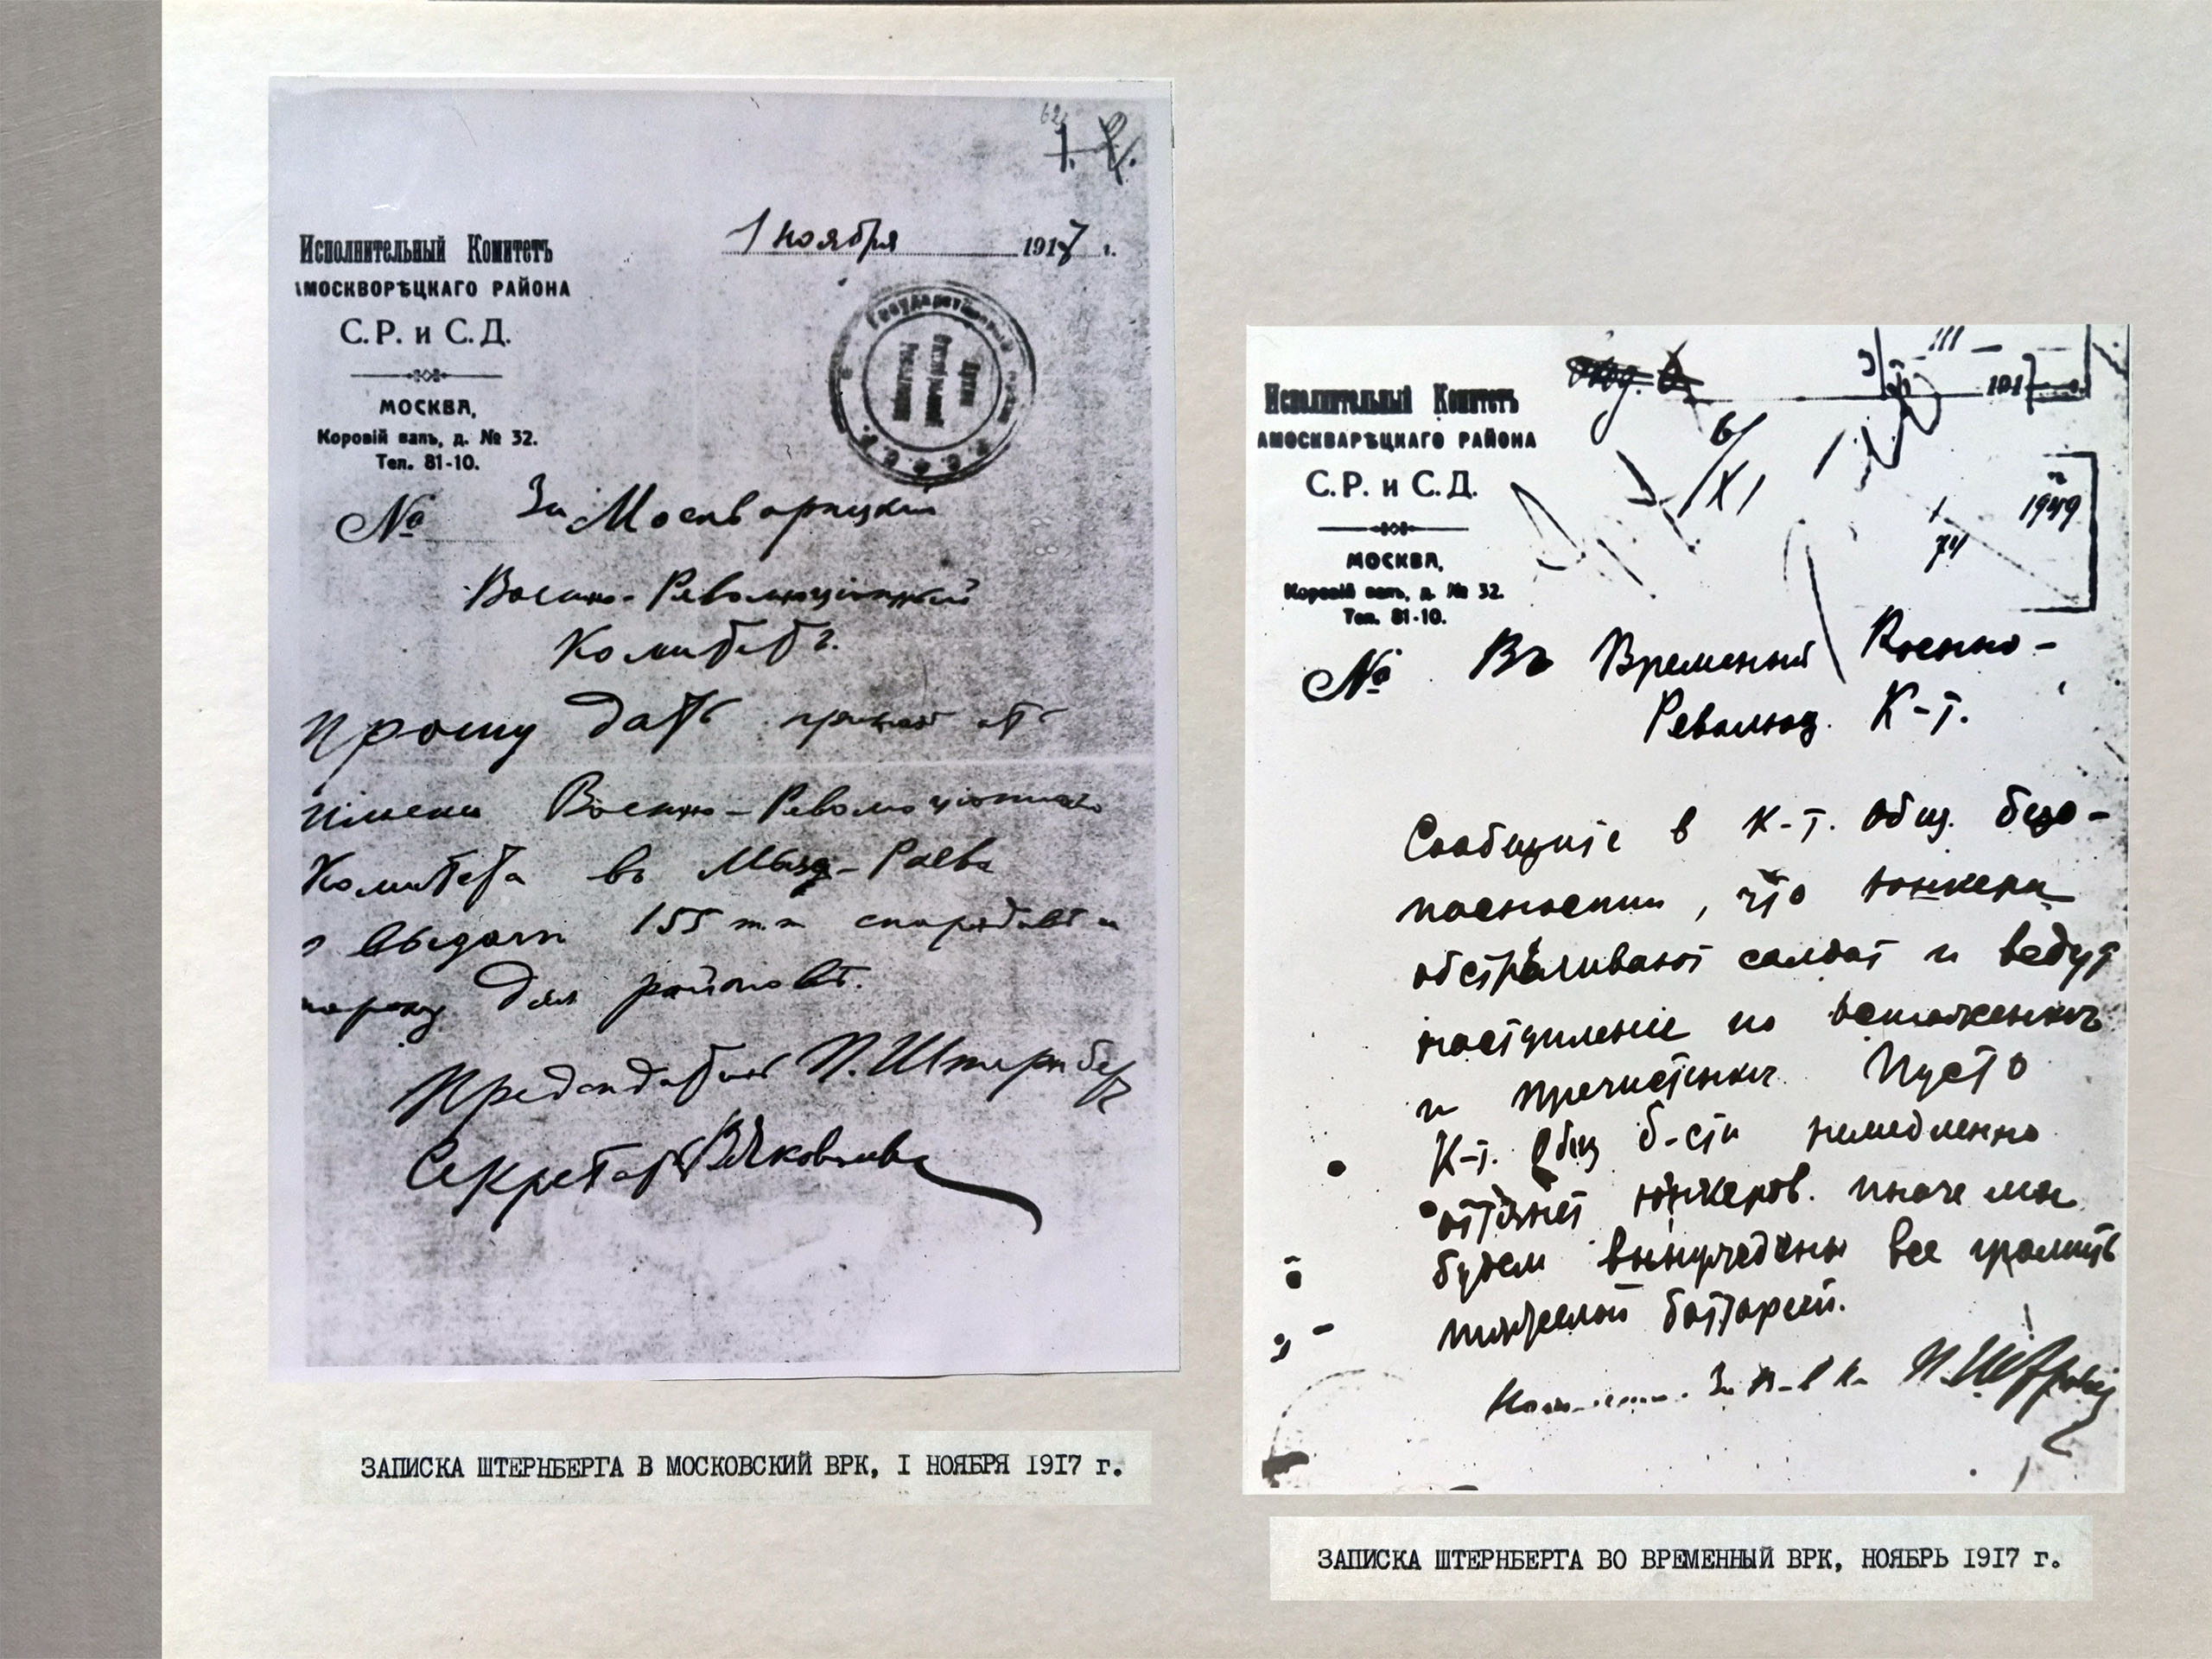 1 ноября 1917 г.
Исполнительный Комитетъ
АМОСКВОРѢЦКАГО РАЙОНА
С.Р. и С.Д.
МОСКВА,
Коровій валъ, д. № 32.
Тел. 81-10.
№
За Москворецкий
Военно-Революціонный
Комитетъ.
Прошу дать приказ от
имени Военно-Революціоннаго
Комитета в Мыза-Раево
о выдачи 155 снарядовъ и
пороху для районовъ.
Председатель П. Штернберг
Секретарь В Яковлева
ЗАПИСКА ШТЕРНБЕРГА В МОСКОВСКИЙ ВРК, I НОЯБРЯ 1917 г.
Исполнительный Комитетъ
АМОСКВАРѢЦКАГО РАЙОНА
С.Р. и С.Д.
МОСКВА,
Коровій валъ, д. № 32.
Тел. 81-10.
6/XI
1949
74
№ Въ Временный Военно-
Революц. К-т.
Сообщите в К-т. Общ. безо-
пасности, что юнкера
обстрѣливают солдат и ведут
наступленіе по Остоженкѣ
и Пречистенкѣ. Пусть
К-т. Общ б-сти немедленно
оттянет юнкеров. иначе мы
будем вынуждены все громить
тяжелой баттареей.
П. Штернберг
ЗАПИСКА ШТЕРНБЕРГА ВО ВРЕМЕННЫЙ ВРК, НОЯБРЬ 1917 г.